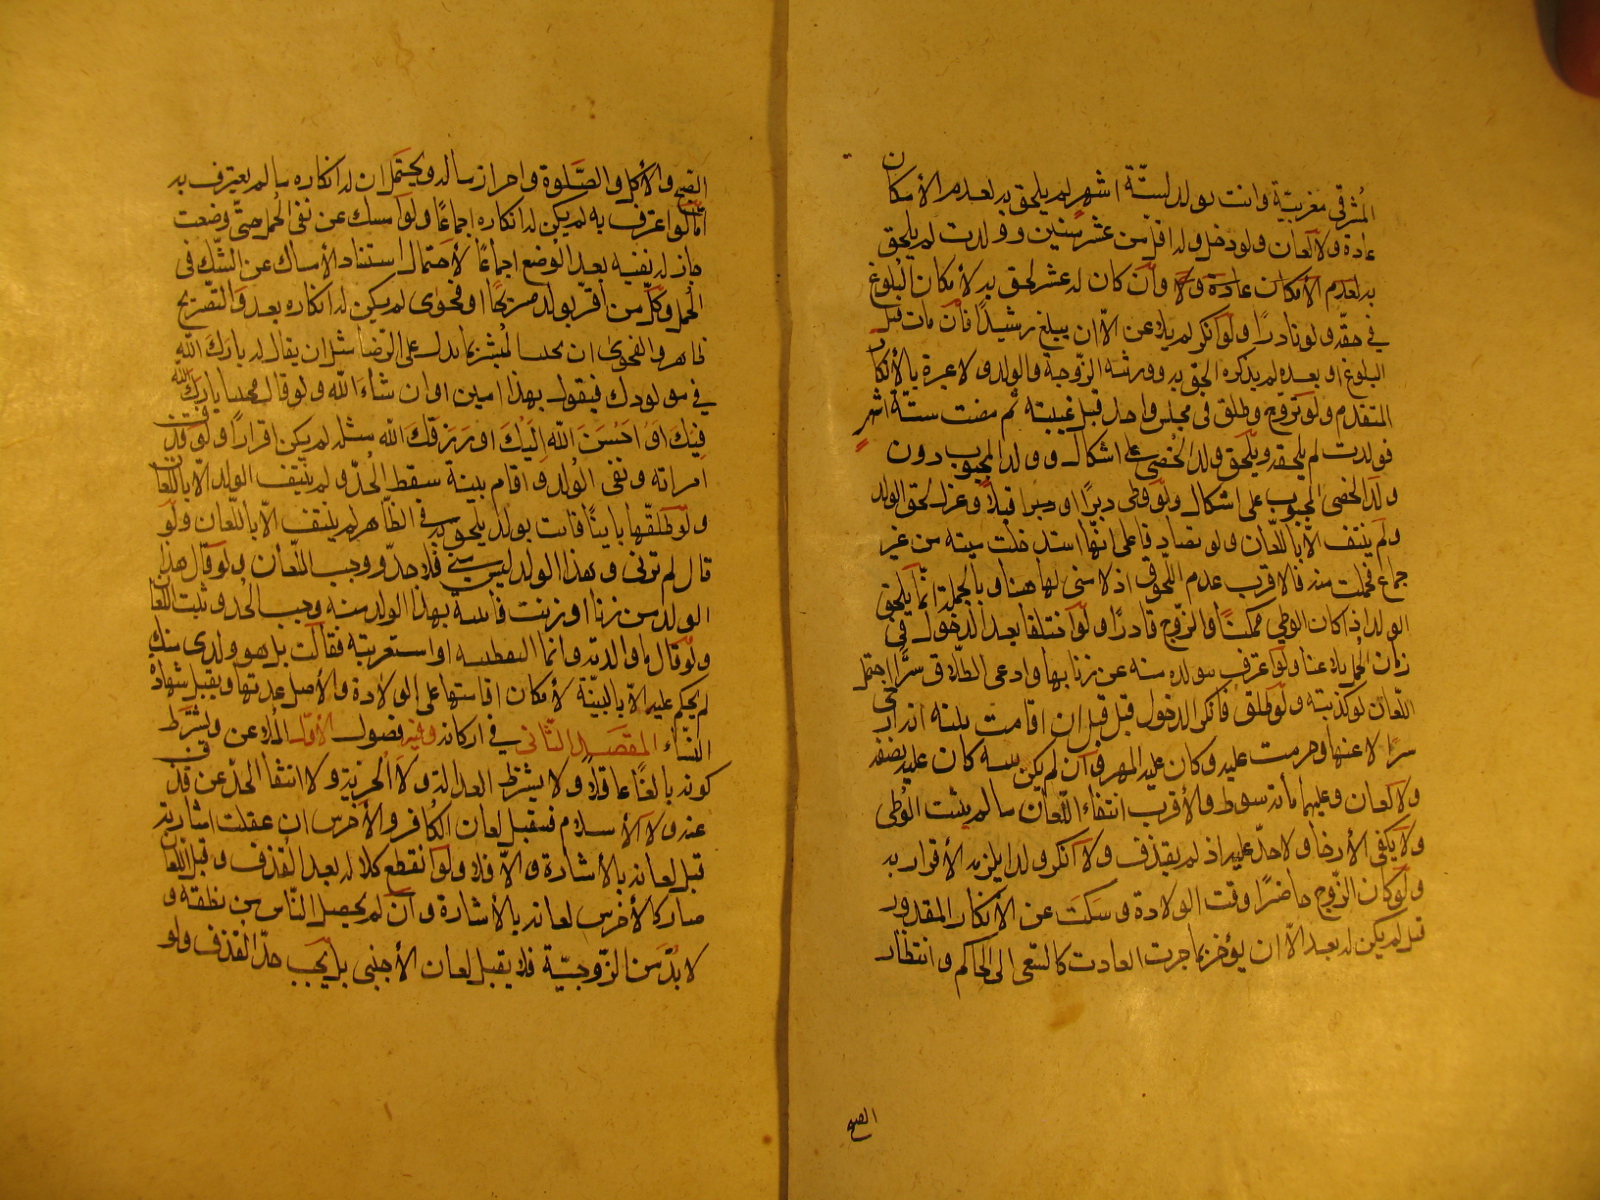 المشرقي مغربية واتت بولد لستة اشهر لم يلحق به لعدم الامكان
عادة ولا لعان ولو دخل وله اقل من عشر سنين وولدت لم يلحق
به لعدم الامكان عادة ولا وان كان له عشر لحق به لامكان البلوغ
في حقه ولو نادرا ولو انكر لم يلاعن الا ان يبلغ رشيدا فان مات قبل
البلوغ او بعده لم ينكره الحق به وورثته الزوجة والولد ولا عبرة بالانكار
المتقدم ولو تزوج وطلق في مجلس واحد قبل غيبته ثم مضت ستة اشهر
فولدت لم يلحقه ويلحق ولد الخصي على اشكال وولد المجبوب دون
ولد الخصي المجبوب على اشكال ولو وطى دبرا او قبلا وعزل لحق الولد
ولم ينتف الا باللعان ولو تصادقا على انها استدخلت منيه من غير
جماع فحملت منه فالاقرب عدم اللحوق اذ لا مني لها هنا وبالجملة انما يلحق
الولد اذا كان الوطي ممكنا والزوج قادرا ولو اختلفا بعد الدخول في
زمان الحمل تلاعنا ولو اعترف بولده منه عن زنا بها وادعى الطلاق سرا احتمل
اللعان لو كذبته ولو طلق فانكر الدخول قيل قبل ان اقامت بينة انه ارخى
سترا لاعنها وحرمت عليه وكان عليه المهر وان لم يكن بينة كان عليه نصفه
ولا لعان وعليها مائة سوط والاقرب انتفاء اللعان ما لم يثبت الوطى
ولا يكفي الارخاء ولا حد عليه اذ لم يقذف ولا انكر ولدا يلزمه الاقرار به
ولو كان الزوج حاضرا وقت الولادة وسكت عن الانكار المقدور
قيل لم يكن له بعده الا ان يؤخر بما جرت العادت كالسعي الى الحاكم وانتظار
الصبح
الصبح والاكل والصلوة واحراز ماله ويحتمل ان له انكاره ما لم يعترف به
اما لو اعترف به لم يكن له انكاره اجماعا ولو امسك عن نفي الحمل حتى وضعت
جاز له نفيه بعد الوضع اجماعا لاحتمال استناد الامساك عن الشك في
الحمل وكل من اقر بولد صريحا او فحوى لم يكن له انكاره بعد والتصريح
ظاهر والفحوى ان يجيب المبشر بما يدل على الرضا مثل ان يقال له بارك الله
في مولودك فيقول بهذا امين او ان شاء الله ولو قال مجيبا بارك الله
فيك او احسن الله اليك او رزقك الله مثله لم يكن اقرارا ولو قذف
امراته ونفى الولد واقام بينة سقط الحد ولم ينتف الولد الا باللعان
ولو طلقها باينا فاتت بولد يلحق به في الظاهر لم ينتف الا باللعان ولو
قال لم تزنى وهذا الولد ليس مني فلا حد ووجب اللعان ولو قال هذا
الولد من زنا او زنيت فاتيت بهذا الولد منه وجب الحد وثبت اللعان
ولو قال ما ولدته وانما التقطته او استعربته فقالت بل هو ولدى منك
لم يحكم عليه الا بالبينة لامكان اقامتها على الولادة والاصل عدمها ويقبل شهادة
النساء المقصد الثاني في اركانه وفيه فصول الاول الملاعن ويشترط
كونه بالغا عاقلا ولا يشترط العدالة ولا الحرية ولا انتفا الحد عن قذف
عنه ولا الاسلام فيقبل لعان الكافر والاخرس ان عقلت اشارته
قبل لعانه بالاشارة والا فلا ولو انقطع كلامه بعد القذف وقبل اللعان
صار كالاخرس لعانه بالاشارة وان لم يحصل الناس من نطقه و
لا بد من الزوجية فلا يقبل لعان الاجنبي بل يجب حد القذف ولو